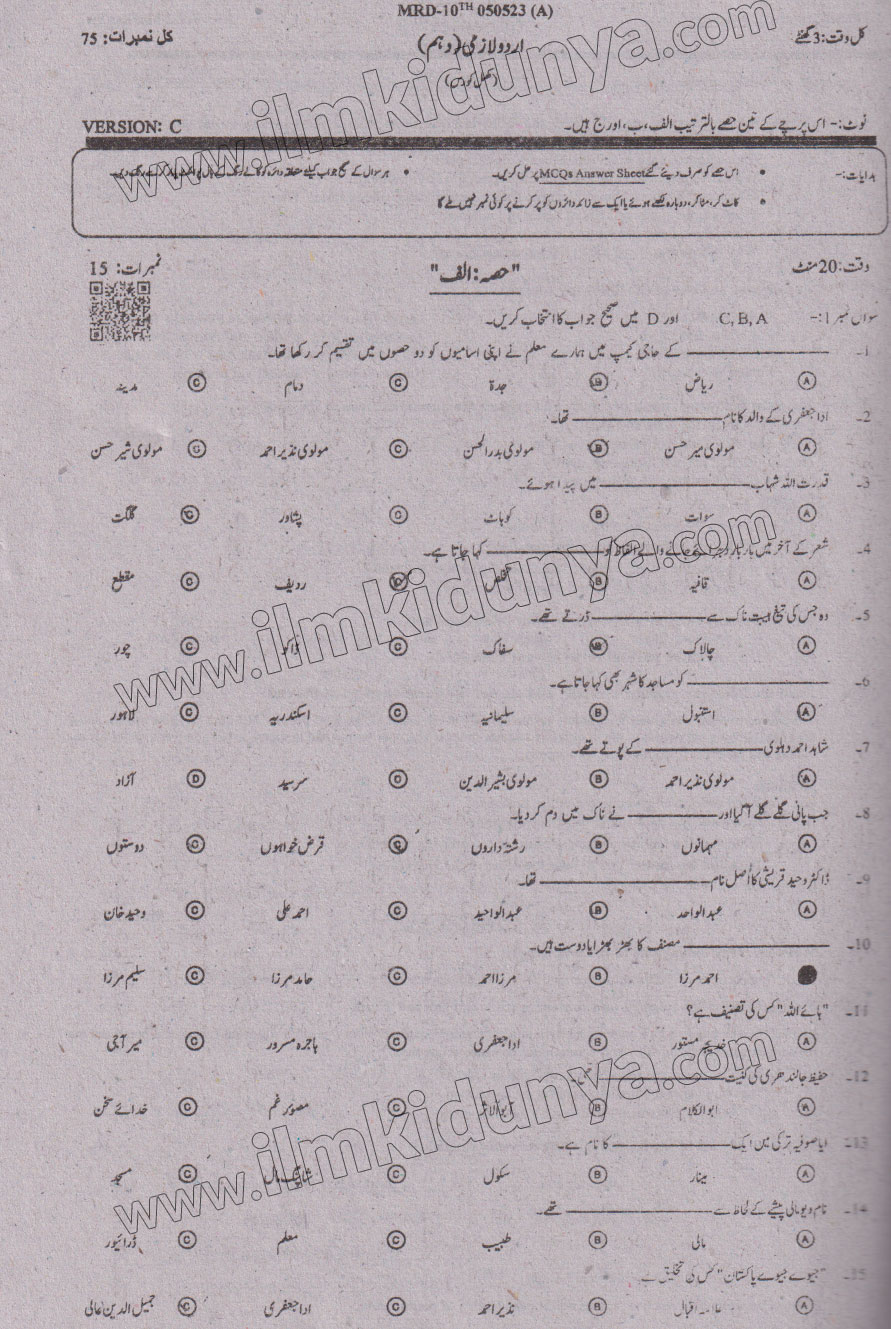 MRD-10TH 050523 (A)
کل وقت:3 گھنٹے اردو لازمی (دہم) کل نمبرات: 75
نوٹ:- اس پرچے کے تین حصے بالترتیب الف، ب، اور ج ہیں۔ VERSION: C
ہدایات:- • اس حصے کو صرف دیئے گئے MCQs Answer Sheet پر حل کریں۔ • ہر سوال کے صحیح جواب کیلئے متعلقہ دائرہ کو
• کاٹ کر، مٹا کر، دوبارہ لکھے ہوئے یا ایک سے زائد دائروں کو پر کرنے پر کوئی نمبر نہیں ملے گا
وقت:20 منٹ "حصہ: الف" نمبرات: 15
سوال نمبر 1:- C, B, A اور D میں صحیح جواب کا انتخاب کریں۔
1۔ ـــــــــــ کے حاجی کیمپ میں ہمارے معلم نے اپنی اسامیوں کو دو حصوں میں تقسیم کر رکھا تھا۔
A ریاض B جدۃ C دمام C مدینہ
2۔ اداجعفری کے والد کا نام ـــــــــــ تھا۔
A مولوی میر حسن B مولوی بدرالحسن C مولوی نذیر احمد C مولوی شیر حسن
3۔ قدرت اللہ شہاب ـــــــــــ میں پیدا ہوئے۔
A سوات B کوہاٹ C پشاور C گلگت
4۔ شعر کے آخر میں بار بار دہرائے جانے والے الفاظ کو ـــــــــــ کہا جاتا ہے۔
A قافیہ B تخلص C ردیف C مقطع
5۔ وہ جس کی تیغ ہیبت ناک سے ـــــــــــ ڈرتے تھے۔
A چالاک B سفاک C ڈاکو C چور
6۔ ـــــــــــ کو مساجد کا شہر بھی کہا جاتا ہے۔
A استنبول B سلیمانیہ C اسکندریہ C لاہور
7۔ شاہد احمد دہلوی ـــــــــــ کے پوتے تھے۔
A مولوی نذیر احمد B مولوی بشیر الدین C سرسید D آزاد
8۔ جب پانی گلے گلے آ گیا اور ـــــــــــ نے ناک میں دم کر دیا۔
A مہمانوں B رشتہ داروں C قرض خواہوں C دوستوں
9۔ ڈاکٹر وحید قریشی کا اصل نام ـــــــــــ تھا۔
A عبدالواحد B عبدالواحید C احمد علی C وحید خان
10۔ ـــــــــــ مصنف کا بھڑ بھڑایا دوست ہیں۔
احمد مرزا B مرزا احمد C حامد مرزا C سلیم مرزا
11۔ "ہائے اللہ" کس کی تصنیف ہے؟
A خدیجہ مستور B اداجعفری C ہاجرہ مسرور C میر آجی
12۔ حفیظ جالندھری کی کنیت ـــــــــــ تھی۔
A ابوالکلام B ابوالاثر C مصور غم C خدائے سخن
13۔ ایاصوفیہ ترکی میں ایک ـــــــــــ کا نام ہے۔
A مینار B سکول C شاپنگ مال C مسجد
14۔ نام دیو مالی پیشے کے لحاظ سے ـــــــــــ تھے۔
A مالی B طبیب C معلم C ڈرائیور
15۔ "جیوے جیوے پاکستان" کس کی تخلیق ہے
A علامہ اقبال B نذیر احمد C اداجعفری C جمیل الدین عالی
www.ilmkidunya.com
www.ilmkidunya.com
www.ilmkidunya.com